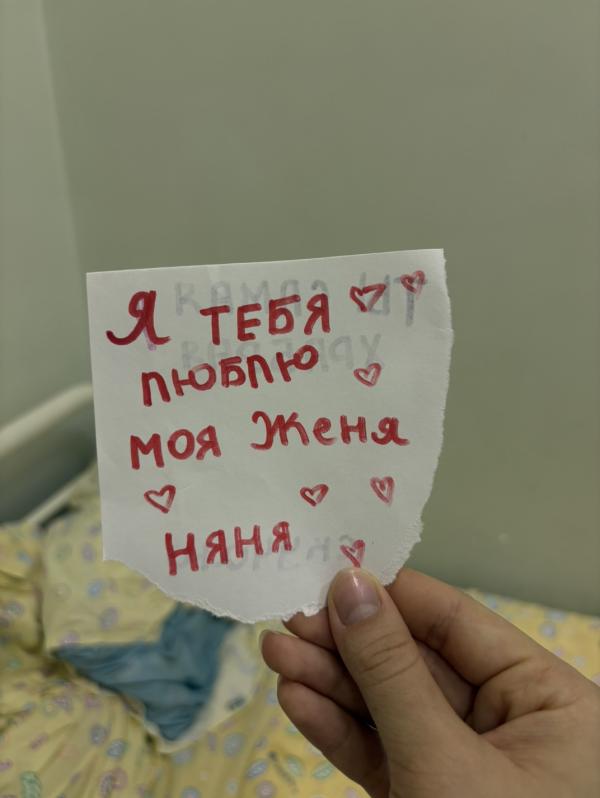 Я ТЕБЯ
люблю
моя Женя
няня